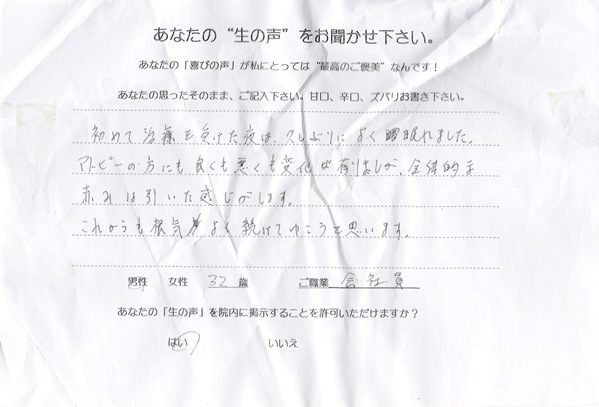 あなたの“生の声”をお聞かせ下さい。
あなたの「喜びの声」が私にとっては“最高のご褒美”なんです！
あなたの思ったそのまま、ご記入下さい。甘口、辛口、ズバリお書き下さい。
初めて治療を受けた夜は、久しぶりによく眠れました。
アトピーの方にも良くも悪くも変化が有りましが、全体的に
赤みは引いた感じがします。
これからも根気よく続けてゆこうと思います。
男性 女性 32 歳 ご職業 会社員
あなたの「生の声」を院内に掲示することを許可いただけますか？
はい いいえ